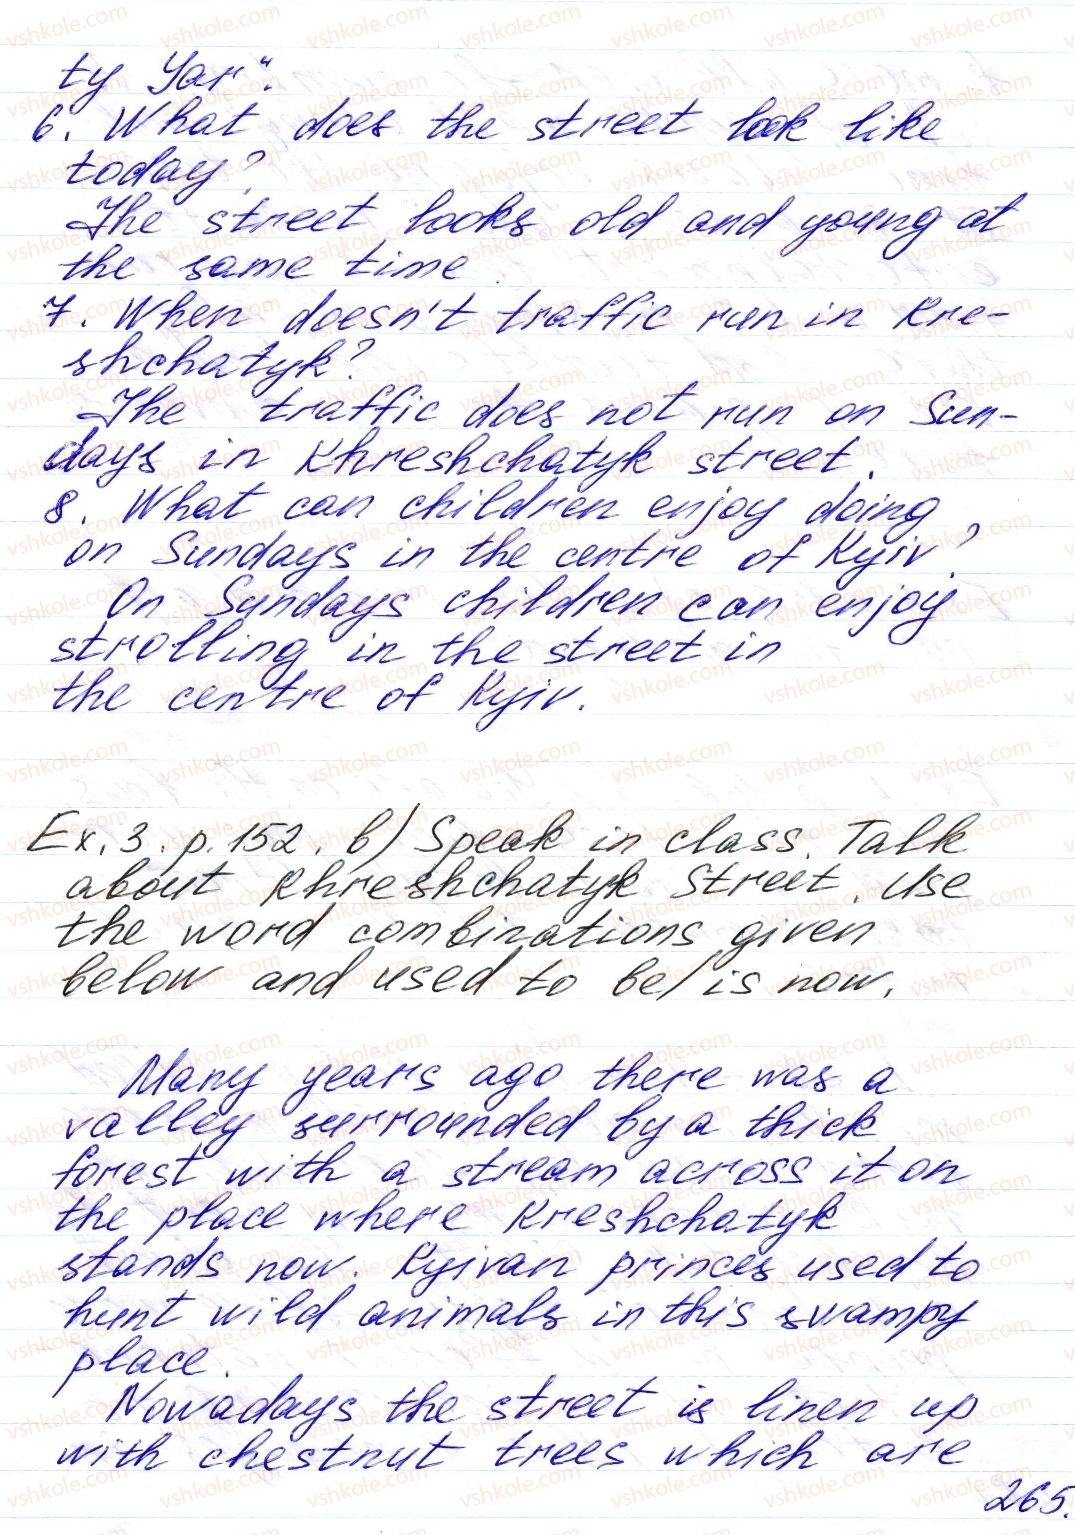 ty Yar".
6. What does the street look like
today?
The street looks old and young at
the same time
7. When doesn't traffic run in Kre-
shchatyk?
The traffic does not run on Sun-
days in Khreshchatyk street.
8. What can children enjoy doing
on Sundays in the centre of Kyiv?
On Sundays children can enjoy
strolling in the street in
the centre of Kyiv.
Ex. 3. p. 152. b) Speak in class. Talk
about Khreshchatyk Street. Use
the word combinations given
below and used to be/is now.
Many years ago there was a
valley surrounded by a thick
forest with a stream across it on
the place where Kreshchatyk
stands now. Kyivan princes used to
hunt wild animals in this swampy
place.
Nowadays the street is linen up
with chestnut trees which are
265.